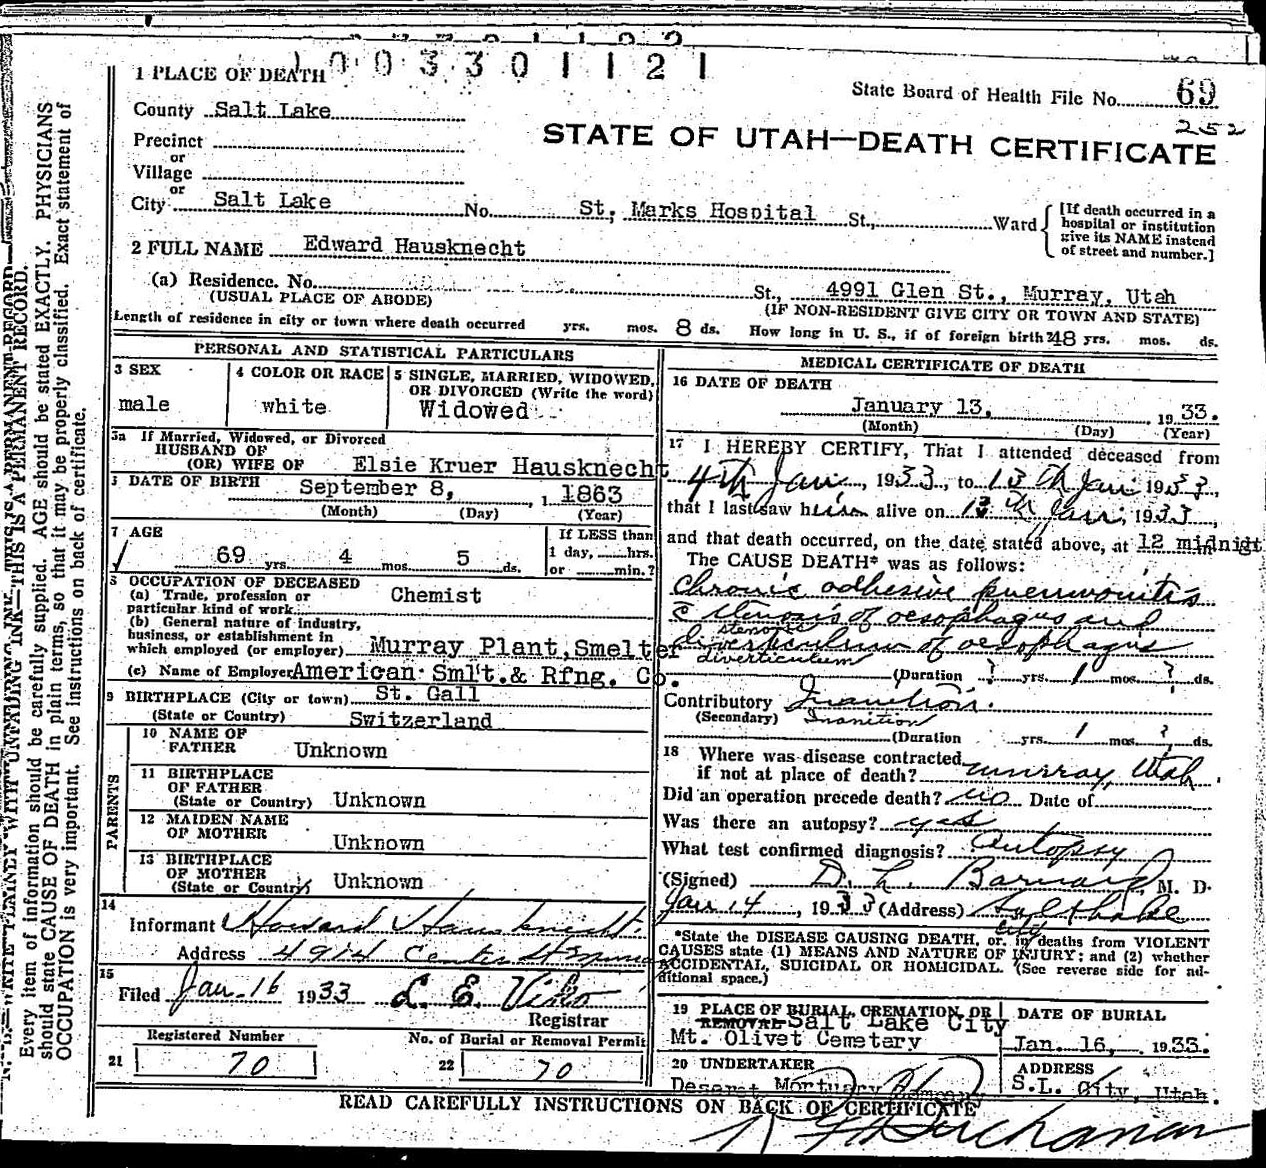 1003301121
1 PLACE OF DEATH
State Board of Health File No. 69
252
County Salt Lake
STATE OF UTAH—DEATH CERTIFICATE
Precinct
or
Village
or
City Salt Lake No. St, Marks Hospital St., Ward
[If death occurred in a
hospital or institution
give its NAME instead
of street and number.]
2 FULL NAME Edward Hausknecht
(a) Residence. No. St., 4991 Glen St., Murray, Utah
(USUAL PLACE OF ABODE) (IF NON-RESIDENT GIVE CITY OR TOWN AND STATE)
Length of residence in city or town where death occurred yrs. mos. 8 ds. How long in U. S., if of foreign birth? 48 yrs. mos. ds.
PERSONAL AND STATISTICAL PARTICULARS
3 SEX
male
4 COLOR OR RACE
white
5 SINGLE, MARRIED, WIDOWED,
OR DIVORCED (Write the word)
Widowed
3a If Married, Widowed, or Divorced
HUSBAND OF
(OR) WIFE OF Elsie Kruer Hausknecht
DATE OF BIRTH September 8, 1863
(Month) (Day) (Year)
7 AGE
69 yrs. 4 mos. 5 ds.
If LESS than
1 day, hrs.
or min.?
8 OCCUPATION OF DECEASED
(a) Trade, profession or
particular kind of work Chemist
(b) General nature of industry,
business, or establishment in
which employed (or employer) Murray Plant, Smelter
(c) Name of Employer American Smlt. & Rfng. Co.
9 BIRTHPLACE (City or town) St. Gall
(State or Country) Switzerland
PARENTS
10 NAME OF
FATHER Unknown
11 BIRTHPLACE
OF FATHER
(State or Country) Unknown
12 MAIDEN NAME
OF MOTHER
Unknown
13 BIRTHPLACE
OF MOTHER
(State or Country) Unknown
14
Informant Howard Hausknecht.
Address 4914 Center St
15
Filed Jan. 16 1933 L. E. Viko
Registrar
Registered Number
21 70
No. of Burial or Removal Permit
22 70
MEDICAL CERTIFICATE OF DEATH
16 DATE OF DEATH
January 13, 1933.
(Month) (Day) (Year)
17 I HEREBY CERTIFY, That I attended deceased from
4th Jan, 1933, to 13th Jan 1933,
that I last saw him alive on 13th Jan, 1933,
and that death occurred, on the date stated above, at 12 midnigt
The CAUSE DEATH* was as follows:
Chronic adhesive pneumonitis
c stenosis of oesophagus and
stenosis
diverticulum of oesophagus
diverticulum
(Duration ? yrs. 1 mos. ? ds.
Contributory Inanition.
(Secondary) Inanition
(Duration yrs. 1 mos. ? ds.
18 Where was disease contracted
if not at place of death? Murray, Utah.
Did an operation precede death? no Date of
Was there an autopsy? yes
What test confirmed diagnosis? Autopsy
(Signed) D. L. Barnard, M. D.
Jan 14, 1933 (Address) Salt Lake
City
*State the DISEASE CAUSING DEATH, or, in deaths from VIOLENT
CAUSES state (1) MEANS AND NATURE OF INJURY; and (2) whether
ACCIDENTAL, SUICIDAL OR HOMICIDAL. (See reverse side for ad-
ditional space.)
19 PLACE OF BURIAL, CREMATION, OR
REMOVAL Salt Lake City
Mt. Olivet Cemetary
DATE OF BURIAL
Jan. 16, 1933.
20 UNDERTAKER
Deseret Mortuary Company
ADDRESS
S.L. City, Utah.
READ CAREFULLY INSTRUCTIONS ON BACK OF CERTIFICATE
Buchanan
THIS IS A PERMANENT RECORD.
Every item of information should be carefully supplied. AGE should be stated EXACTLY. PHYSICIANS
should state CAUSE OF DEATH in plain terms, so that it may be properly classified. Exact statement of
OCCUPATION is very important. See instructions on back of certificate.